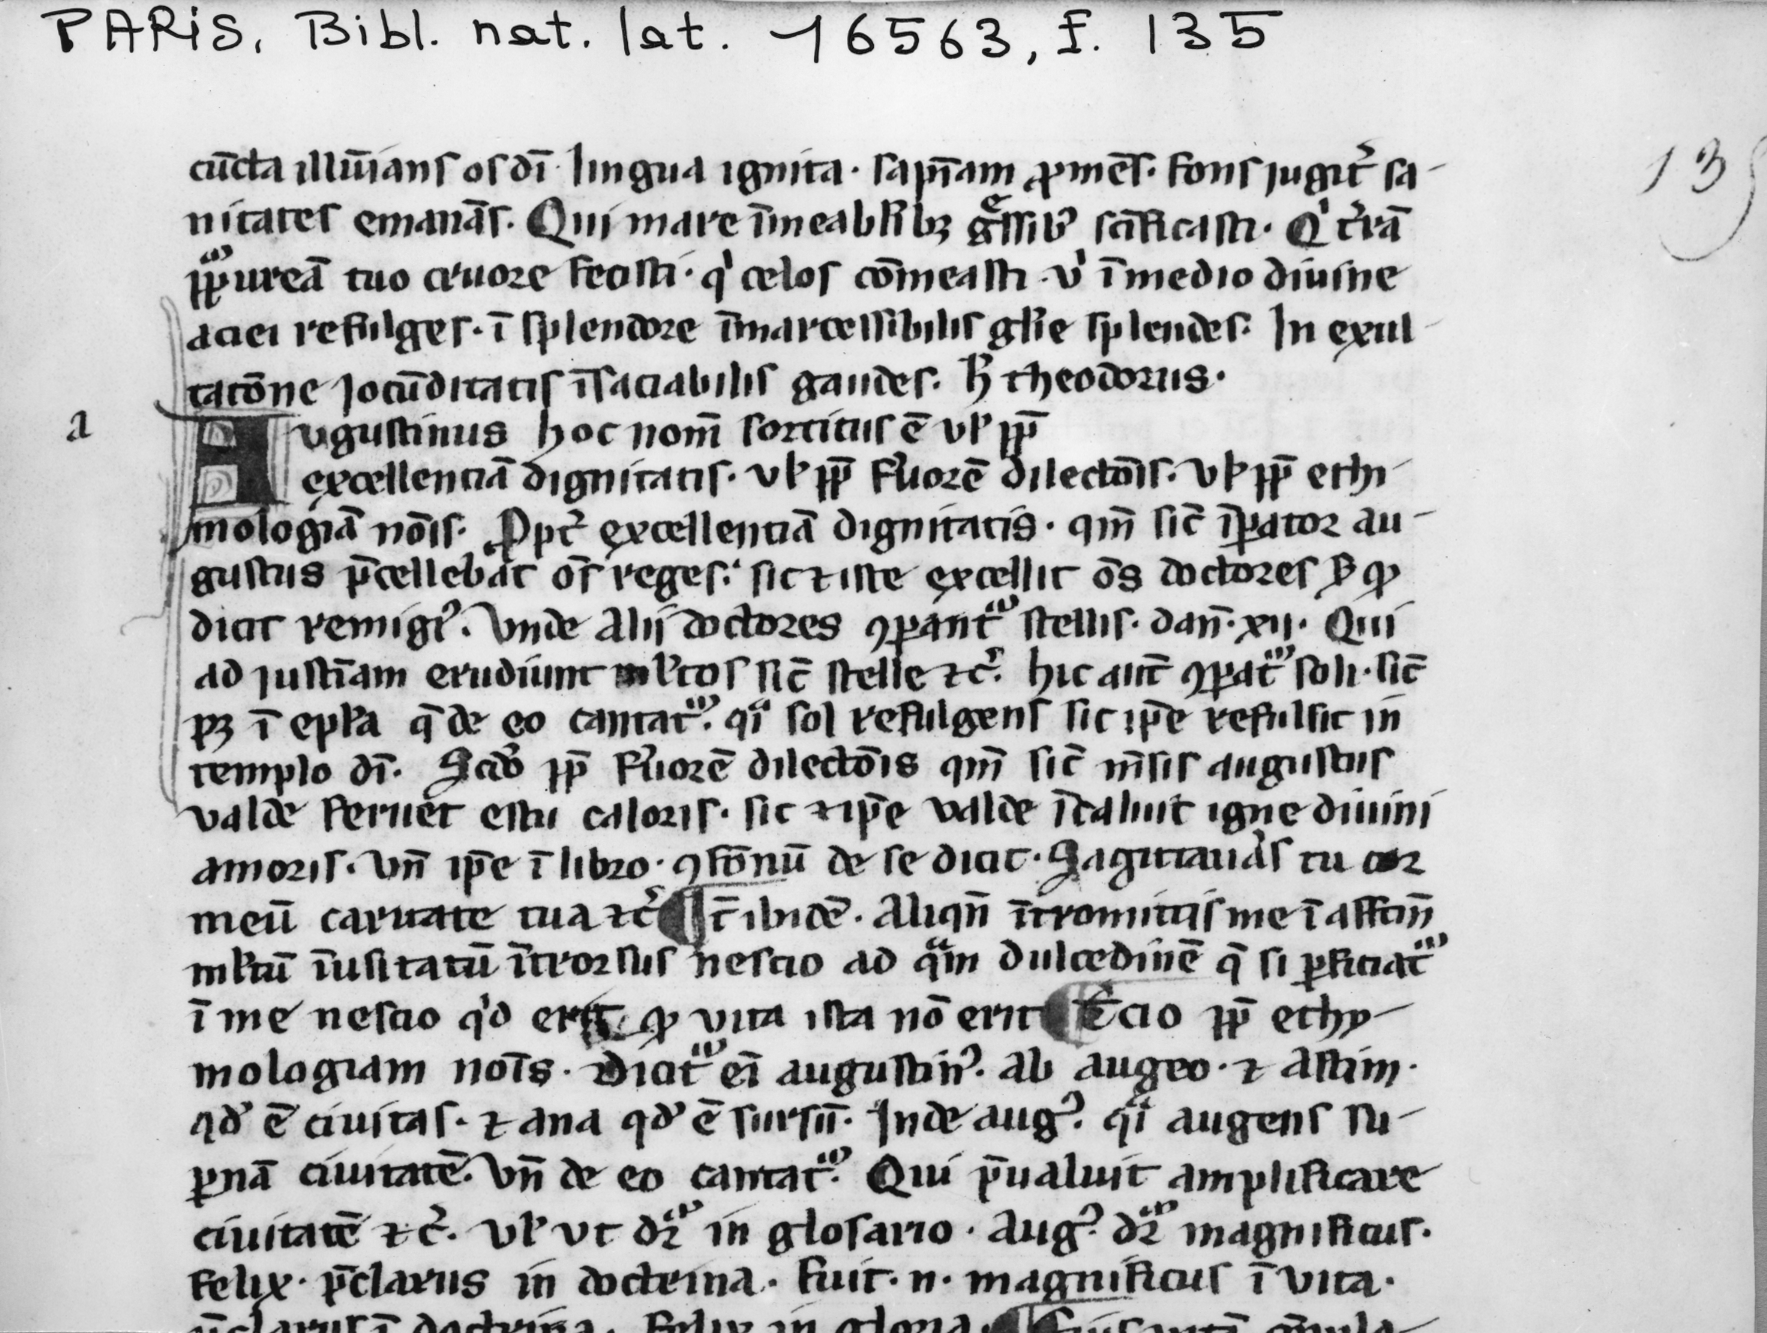 PARIS, Bibl. nat. lat. 16563, f. 135
135
cūcta illuīans os dī lingua ignita · sapn̄am ꝓmēs · fons iugit᷑ sa-
nitates emanās · Qui mare īmeablīb₃ gͤssibꝰ scīficasti · Qͥ t᷑rā
p̲p̲ureā tuo cruore fecisti · qͥ celos cōmeasti · vͥ ī medio diuine
aciei refulges · ī splendore īmarcessibilis glīe splendes · In exul-
tatōne iocūditatis īsaciabilis gaudes · h̄ theodorus ·
a
Augustinus hoc nom̄ sortitus ē vƚ pp̄
excellenciā dignitatis · vƚ pp̄ f᷑uorē dilectōis · vƚ pp̄ ethi-
mologiā nōis · Ppt᷑ excellentiā dignitatis · qm̄ sic̄ īꝑator au-
gustus p̄cellebat om̄s reges · sic ⁊ iste excellit ōs doctores ẜ ꝙ
dicit remigiꝰ · Vnde alij doctores ꝯꝑant᷑ stellis · dan̄ · xij · Qui
ad iustīam erudiunt mƚtos sic̄ stelle ⁊c̄ · hic aut̄ ꝯꝑat᷑ soli · sic̄
p₃ ī epƚa q̄ de eo cantat᷑ · qͣi sol refulgens sic ip̄e refulsit in
templo dī · Scd̄o pp̄ f᷑uorē dilectōis qm̄ sic̄ m̄sis augustus
valde feruet estu caloris · sic ⁊ ip̄e valde īcaluit igne diuini
amoris · Vn̄ ip̄e ī libro · ꝯfōnū de se dicit · Sagittauās tu cor
meū caritate tua ⁊c̄ ¶ t̄ ibidē · Aliqn̄ ītromittis me ī affctm̄
mƚtū īusitatū ītrorsus nescio ad qͣm dulcedinē q̄ si ꝑficiat᷑
ī me nescio qͥd erit ꝙ vita ista nō erit ¶ Tcio pp̄ ethy-
mologiam nōis · Dicit᷑ eī augustinꝰ · ab augeo · ⁊ astim ·
qd̄ ē ciuitas · ⁊ ana qd̄ ē sursū · Inde augꝰ · qͣi augens su-
ꝑnā ciuitatē · Vn̄ de eo cantat᷑ · Qui p̄ualuit amplificare
ciuitatē ⁊c̄ · vƚ vt dr᷑ in glosario · augꝰ dr᷑ magnificus ·
felix · p̄clarus in doctrina · fuit · n · magnificus ī vita ·
p̄clarus ī doctrina · felix in gloria ·